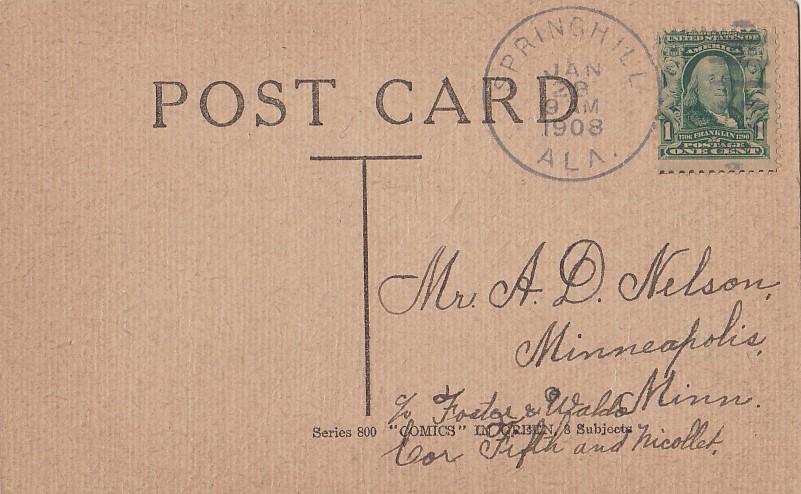 POST CARD
SPRINGHILL
JAN
28
9 AM
1908
ALA.
SERIES 1902
UNITED STATES OF
AMERICA
1 1706 FRANKLIN 1790 1
POSTAGE
ONE CENT
Mr. A. D. Nelson,
Minneapolis,
Minn.
% Foster & Waldo
Series 800 "COMICS" IN GREEN, 8 Subjects
Cor Fifth and Nicollet.